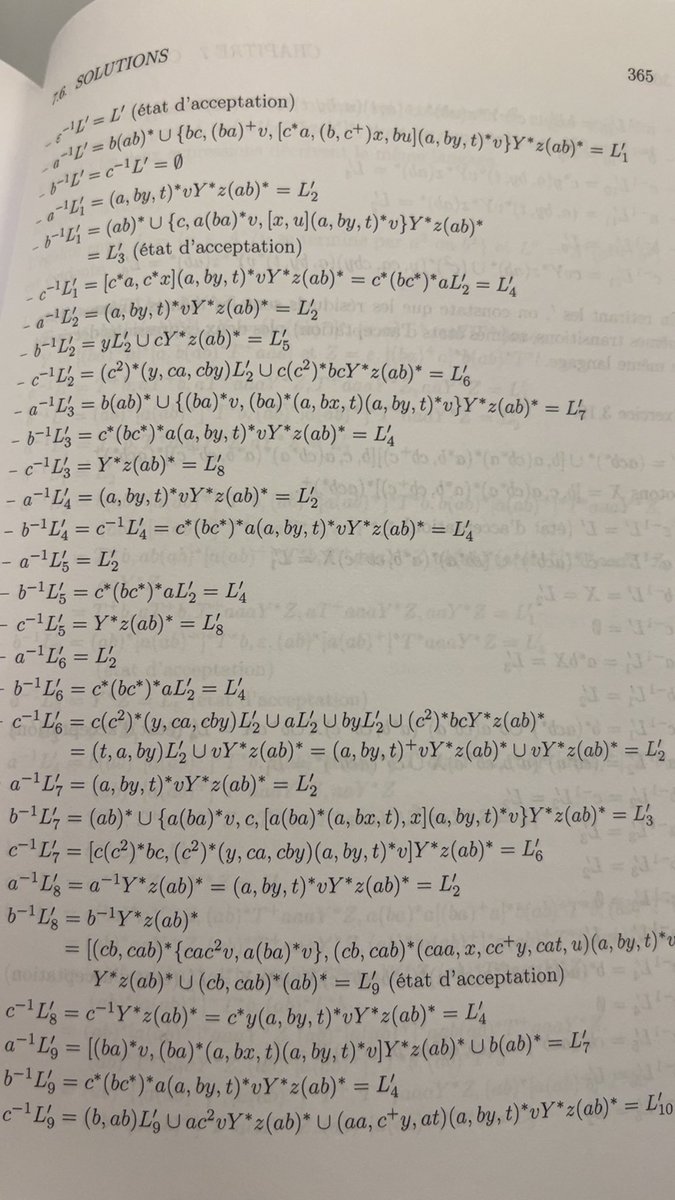 7.6. SOLUTIONS
365
– ε⁻¹L′ = L′ (état d'acceptation)
– a⁻¹L′ = b(ab)* ∪ {bc, (ba)⁺v, [c*a, (b, c⁺)x, bu](a, by, t)*v}Y*z(ab)* = L′₁
– b⁻¹L′ = c⁻¹L′ = ∅
– a⁻¹L′₁ = (a, by, t)*vY*z(ab)* = L′₂
– b⁻¹L′₁ = (ab)* ∪ {c, a(ba)*v, [x, u](a, by, t)*v}Y*z(ab)*
= L′₃ (état d'acceptation)
– c⁻¹L′₁ = [c*a, c*x](a, by, t)*vY*z(ab)* = c*(bc*)*aL′₂ = L′₄
– a⁻¹L′₂ = (a, by, t)*vY*z(ab)* = L′₂
– b⁻¹L′₂ = yL′₂ ∪ cY*z(ab)* = L′₅
– c⁻¹L′₂ = (c²)*(y, ca, cby)L′₂ ∪ c(c²)*bcY*z(ab)* = L′₆
– a⁻¹L′₃ = b(ab)* ∪ {(ba)*v, (ba)*(a, bx, t)(a, by, t)*v}Y*z(ab)* = L′₇
– b⁻¹L′₃ = c*(bc*)*a(a, by, t)*vY*z(ab)* = L′₄
– c⁻¹L′₃ = Y*z(ab)* = L′₈
– a⁻¹L′₄ = (a, by, t)*vY*z(ab)* = L′₂
– b⁻¹L′₄ = c⁻¹L′₄ = c*(bc*)*a(a, by, t)*vY*z(ab)* = L′₄
– a⁻¹L′₅ = L′₂
– b⁻¹L′₅ = c*(bc*)*aL′₂ = L′₄
– c⁻¹L′₅ = Y*z(ab)* = L′₈
– a⁻¹L′₆ = L′₂
– b⁻¹L′₆ = c*(bc*)*aL′₂ = L′₄
c⁻¹L′₆ = c(c²)*(y, ca, cby)L′₂ ∪ aL′₂ ∪ byL′₂ ∪ (c²)*bcY*z(ab)*
= (t, a, by)L′₂ ∪ vY*z(ab)* = (a, by, t)⁺vY*z(ab)* ∪ vY*z(ab)* = L′₂
a⁻¹L′₇ = (a, by, t)*vY*z(ab)* = L′₂
b⁻¹L′₇ = (ab)* ∪ {a(ba)*v, c, [a(ba)*(a, bx, t), x](a, by, t)*v}Y*z(ab)* = L′₃
c⁻¹L′₇ = [c(c²)*bc, (c²)*(y, ca, cby)(a, by, t)*v]Y*z(ab)* = L′₆
a⁻¹L′₈ = a⁻¹Y*z(ab)* = (a, by, t)*vY*z(ab)* = L′₂
b⁻¹L′₈ = b⁻¹Y*z(ab)*
= [(cb, cab)*{cac²v, a(ba)*v}, (cb, cab)*(caa, x, cc⁺y, cat, u)(a, by, t)*v
Y*z(ab)* ∪ (cb, cab)*(ab)* = L′₉ (état d'acceptation)
c⁻¹L′₈ = c⁻¹Y*z(ab)* = c*y(a, by, t)*vY*z(ab)* = L′₄
a⁻¹L′₉ = [(ba)*v, (ba)*(a, bx, t)(a, by, t)*v]Y*z(ab)* ∪ b(ab)* = L′₇
b⁻¹L′₉ = c*(bc*)*a(a, by, t)*vY*z(ab)* = L′₄
c⁻¹L′₉ = (b, ab)L′₉ ∪ ac²vY*z(ab)* ∪ (aa, c⁺y, at)(a, by, t)*vY*z(ab)* = L′₁₀